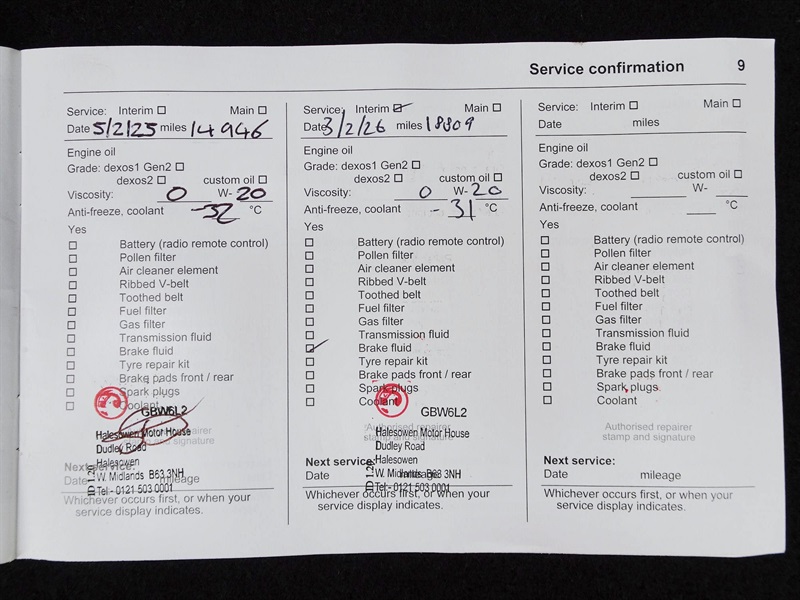 Service confirmation 9
Service: Interim Main
Date 5/2/25 miles 14946
Engine oil
Grade: dexos1 Gen2
dexos2 custom oil
Viscosity: 0 W- 20
Anti-freeze, coolant -32 °C
Yes
Battery (radio remote control)
Pollen filter
Air cleaner element
Ribbed V-belt
Toothed belt
Fuel filter
Gas filter
Transmission fluid
Brake fluid
Tyre repair kit
Brake pads front / rear
Spark plugs
Coolant
GBW6L2
Halesowen Motor House
Dudley Road
Halesowen
W. Midlands B63 3NH
Tel:- 0121 503 0001
Next service:
Date mileage
Whichever occurs first, or when your
service display indicates.
Service: Interim Main
Date 3/2/26 miles 18809
Engine oil
Grade: dexos1 Gen2
dexos2 custom oil
Viscosity: 0 W- 20
Anti-freeze, coolant -31 °C
Yes
Battery (radio remote control)
Pollen filter
Air cleaner element
Ribbed V-belt
Toothed belt
Fuel filter
Gas filter
Transmission fluid
Brake fluid
Tyre repair kit
Brake pads front / rear
Spark plugs
Coolant
GBW6L2
Authorised repairer
stamp and signature
Halesowen Motor House
Dudley Road
Halesowen
W. Midlands B63 3NH
Tel:- 0121 503 0001
Next service:
Date mileage
Whichever occurs first, or when your
service display indicates.
Service: Interim Main
Date miles
Engine oil
Grade: dexos1 Gen2
dexos2 custom oil
Viscosity: W-
Anti-freeze, coolant °C
Yes
Battery (radio remote control)
Pollen filter
Air cleaner element
Ribbed V-belt
Toothed belt
Fuel filter
Gas filter
Transmission fluid
Brake fluid
Tyre repair kit
Brake pads front / rear
Spark plugs
Coolant
Authorised repairer
stamp and signature
Next service:
Date mileage
Whichever occurs first, or when your
service display indicates.